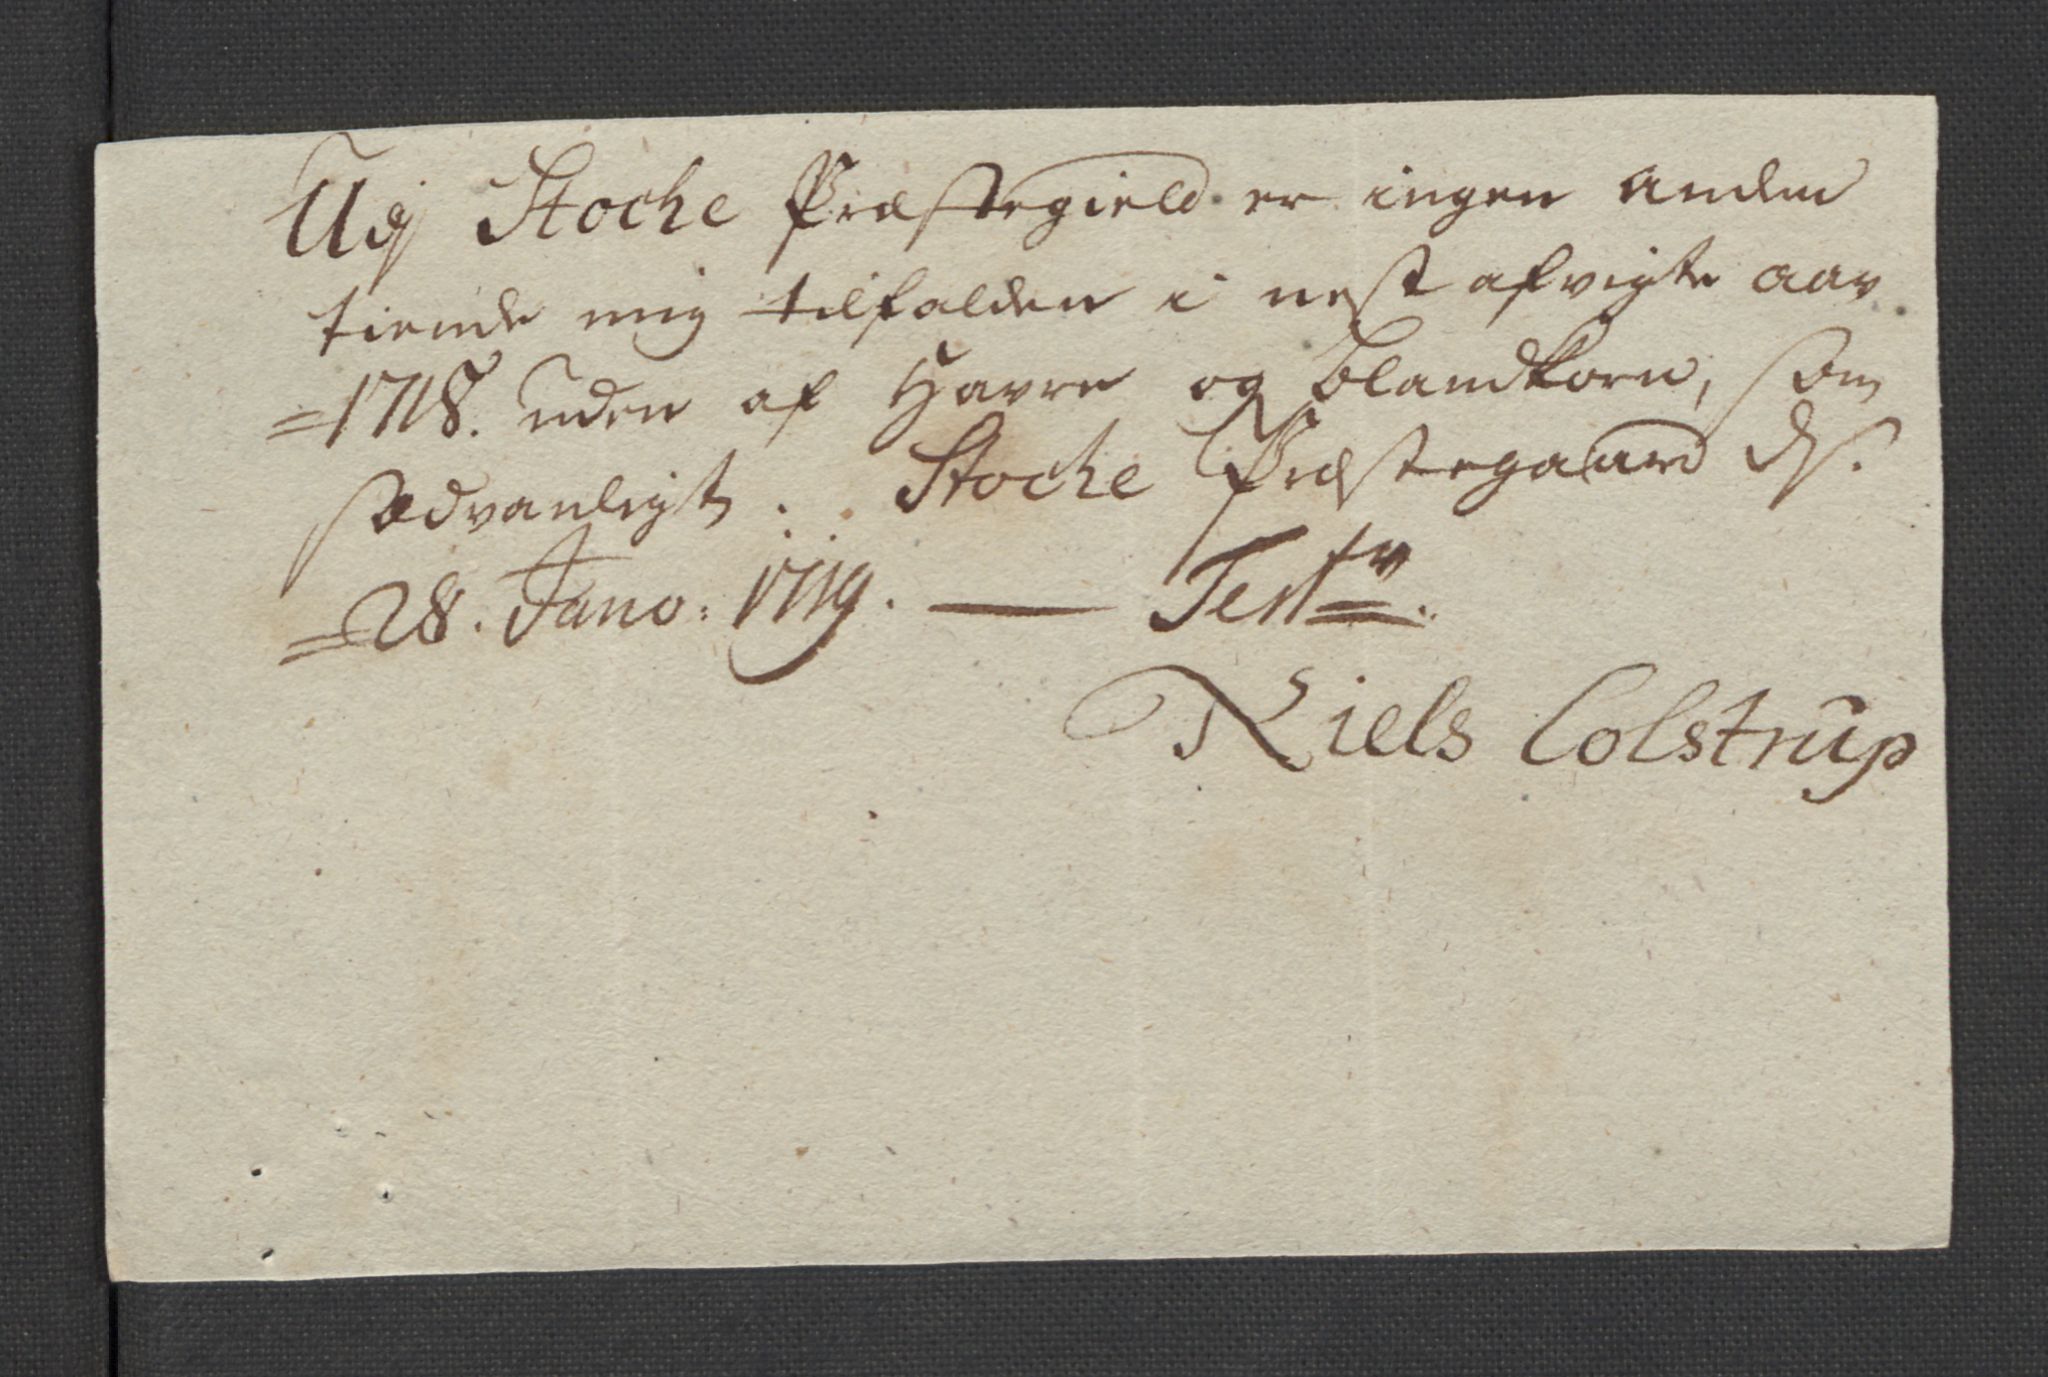 Udj Stoche Præstegield er ingen anden
tiende mig tilfalden i nest afvigte aar
=1718. uden af Havre og blandkorn, som
sædvanligt. Stoche Præstegaard ds.
=28. Jano: 1719. — Test
Niels Colstrup